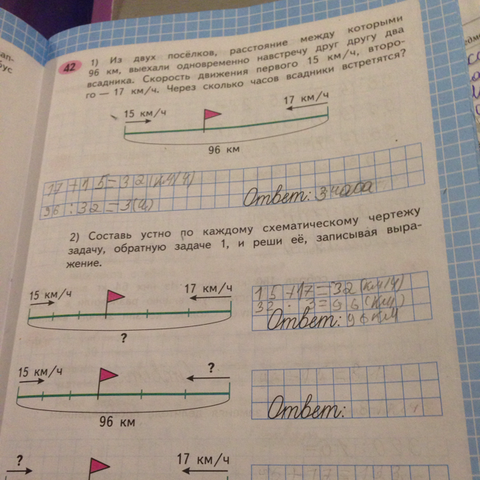 42
1) Из двух посёлков, расстояние между которыми
96 км, выехали одновременно навстречу друг другу два
всадника. Скорость движения первого 15 км/ч, второ-
го — 17 км/ч. Через сколько часов всадники встретятся?
15 км/ч 17 км/ч
96 км
17+15=32(км/ч)
96:32=3(ч)
Ответ: 3 часа
2) Составь устно по каждому схематическому чертежу
задачу, обратную задаче 1, и реши её, записывая выра-
жение.
15 км/ч 17 км/ч
?
15+17=32(км/ч)
32·3=96(км)
Ответ: 96 км
15 км/ч ?
96 км
Ответ:
? 17 км/ч